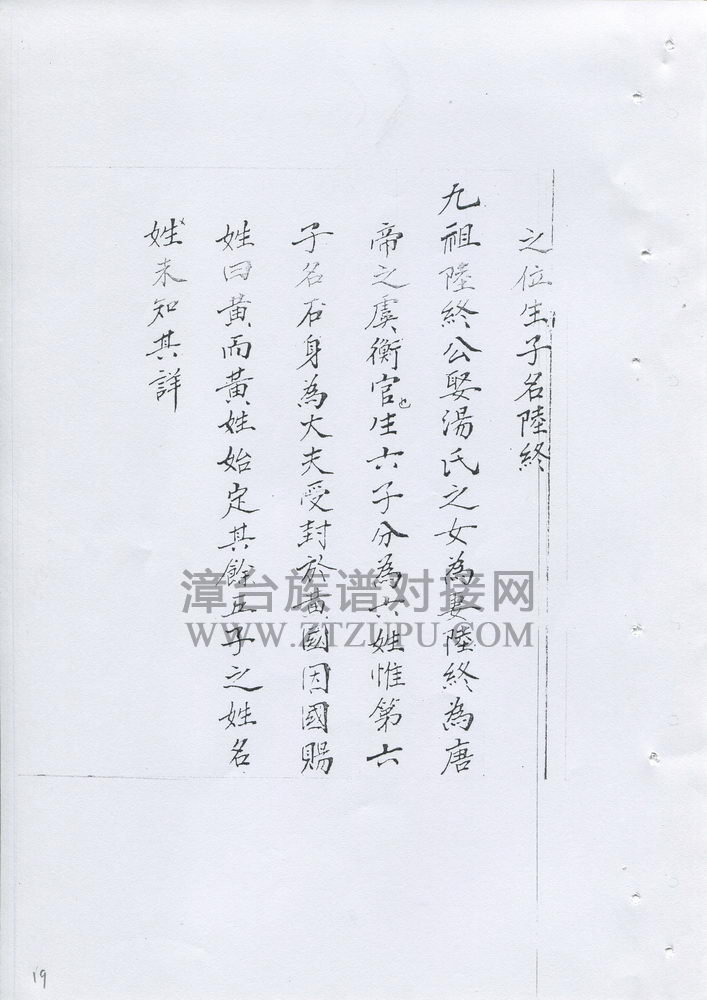 之位生子名陸終
九祖陸終公娶湯氏之女為妻陸終為唐
帝之虞衡官也生六子分為六姓惟第六
子名石身為大夫受封於黃國因國賜
姓曰黃而黃姓始定其餘五子之姓名
姓未知其詳
漳台族谱对接网
WWW.ZTZUPU.COM
19